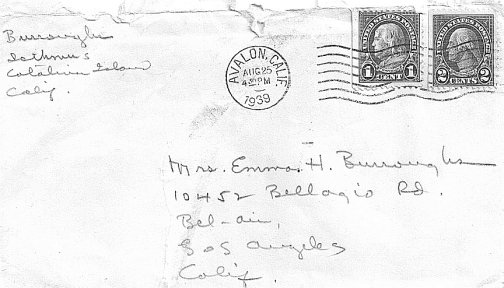 Burroughs
Isthmus
Catalina Island
Calif.
AVALON, CALIF.
AUG 25
4 PM
1939
UNITED STATES POSTAGE
1 CENT 1
UNITED STATES POSTAGE
2 CENTS 2
Mrs. Emma H. Burroughs
10452 Bellagio Rd.
Bel-air,
Los Angeles
Calif.